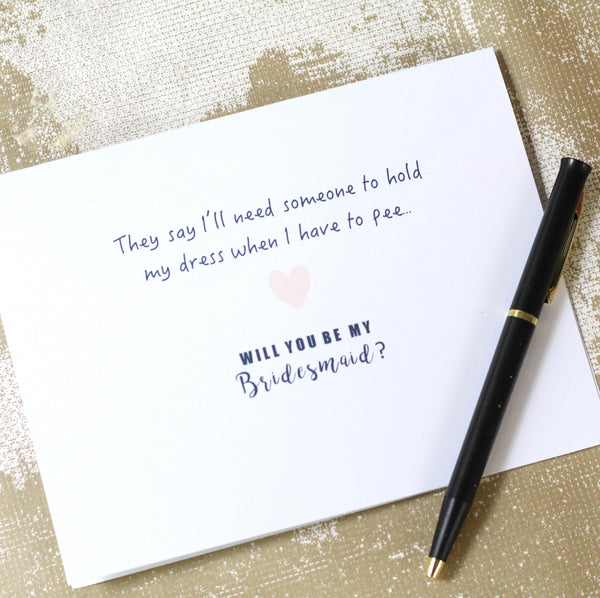 They say I'll need someone to hold
my dress when I have to pee..
WILL YOU BE MY
Bridesmaid?